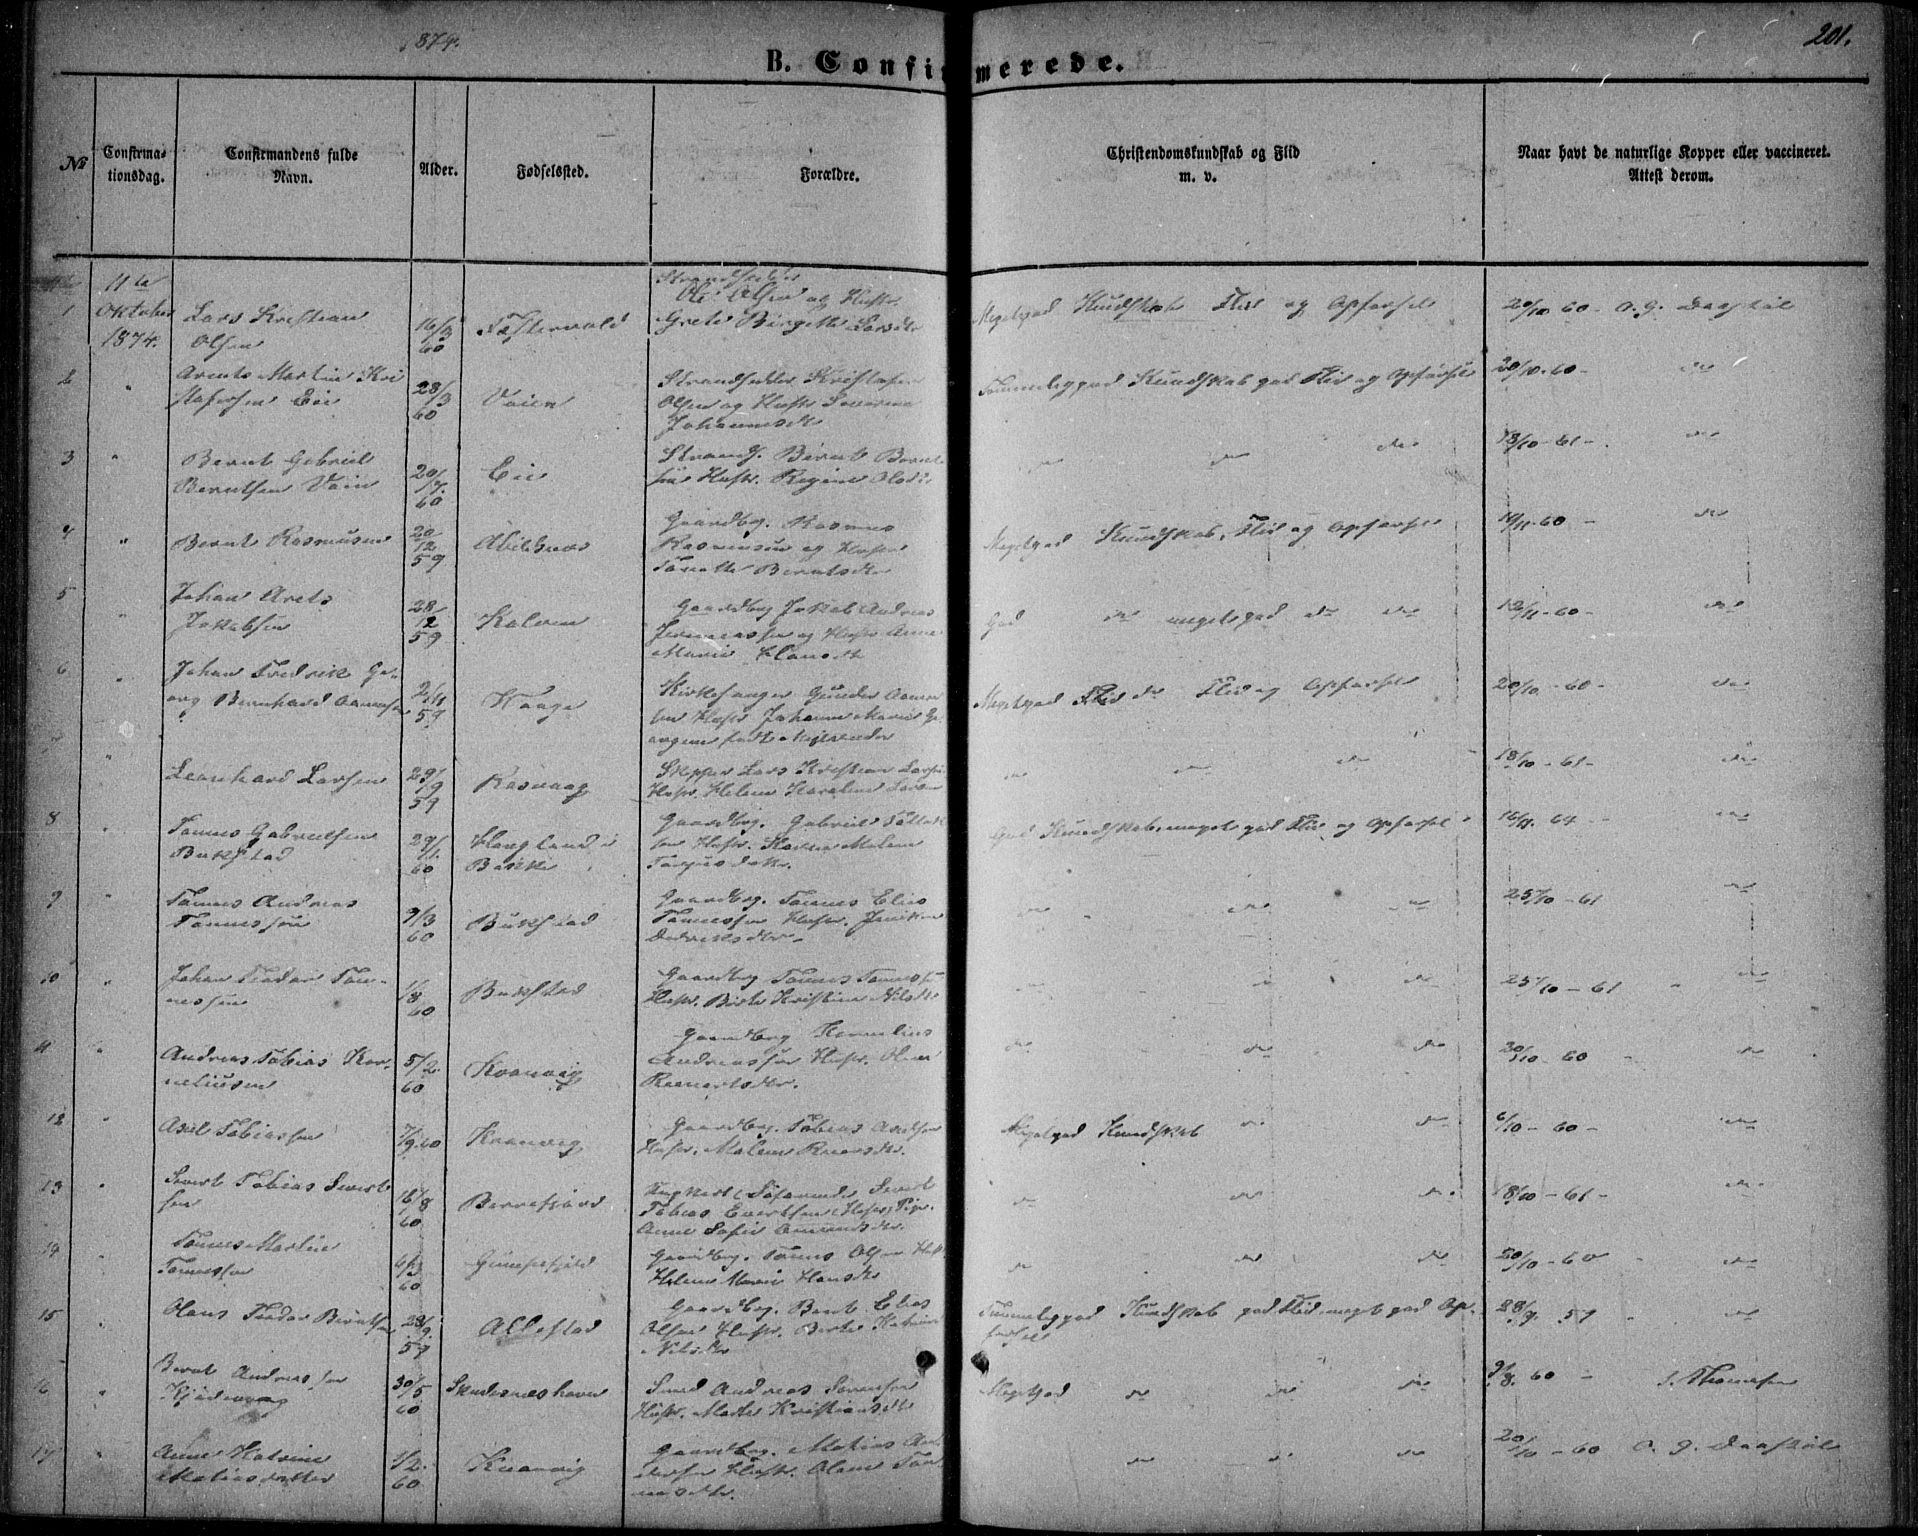 1874.
201.
B. Confirmerede.
No
Confirma-
tionsdag.
Confirmandens fulde
Navn.
Alder.
Fødselssted.
Forældre.
Christendomskundskab og Flid
m. v.
Naar havt de naturlige Kopper eller vaccineret.
Attest derom.
11te
Oktober
1874.
1
Lars Kristian
Olsen
16/3
60
Strandsidder
Ole Olsen og Hustr.
Grete Birgitte Larsdtr
Megetgod Kundskab Flid og Opførsel
20/10 60 - O. G. Daastøl
2
Arents Martin Kri
stofersen Eie
28/3
60
Vaien
Strandsidder Kristofer
Olsen og Hustr Severine
Johannesdtr
Temmeliggod Kundskab god Flid og Opførsel
20/10-60-
do
3
Bernt Gabriel
Berntsen Vaien
60
Eie
Strands. Bernt Bernt
sen Hustr. Regine Olsdtr
do
do
do
13/10-61-
do
4
Bernt Rasmussen
20
12
59
Abelsnes
Gaardbrg. Rasmus
Rasmussen og Hustr
Tonette Berntsdtr
Megetgod Kundskab, Flid og Opførsel
14/11-60-
do
5
Johan Arets
Jakobsen
28
12
59
Kalven
Gaardbrg Jakob Andreas
Jeremiassen og Hustr Anne
Marie Hansdtr
God do megetgod do do
12/11-60-
do
6
Johan Fredrik Ge-
org Bernhard Aanensen
2/11
59
Haage
Kirkesanger Gunder Aanen
sen Hustr Johanne Marie Ge
orgine født Mejlænder
Megetgod Flid do Flid og Opførsel
20/10-60-
do
7
Leonhard Larsen
29/9
59
Rasvaag
Skipper Lars Kristian Larsen
Hustr. Helene Karoline Larsen
do
do
do
18/10-61-
do
8
Tønnes Gabrielsen
Bukstad
29/1.
60
Haugland i
Bakke
Gaardbrg. Gabriel Tollak
sen Hustr. Karen Malene
Torjusdatr.
God Kundskab, meget god Flid og Opførsel
16/11. 64-
do
9
Tønnes Andreas
Tønnessen
9/3
60
Bukstad
Gaardbrg. Tønnes Elias
Tønnessen Hustr. Jenikine
Didriksdtr.
do
do
do
25/10-61
do
10
Johan Teodor Tøn-
nessen
1/8
60
Bukstad
Gaardbrg Tønnes Tønnessen
Hustr. Birte Kristine Nilsdtr
do
do
do
25/10-61
do
11
Andreas Tobias Kor-
neliusen
5/2.
60
Kvanvig
Gaardbrg Kornelius
Andreassen Hustr. Oline
Reinertsdtr.
do
do
do
20/10-60
do
12
Axel Tobiassen
7/9 60
Kvanvig
Gaardbrg. Tobias Axelsen
Hustr. Malene
Megetgod Kundskab do do
6/10-60-
do
13
Sivert Tobias Sivert
sen
16/8
60
Berrefjord
Ungkarl Søfarende Sivert
Tobias Evertsen Pige.
Anne Sofie Amundsdtr.
do
do
do
18/10-61-
do
14
Tønnes Martin
Tønnessen
6/3
60
Gaardbrg. Tønnes Olsen Hustr
Helene Marie Hansdtr
do
do
do
20/10-60
do
15
Olaus Teodor Berntsen
28/9.
59
Allestad
Gaardbrg. Bernt Elias
Olsen Hustr. Berte Katrine
Nilsdtr
Temmeliggod Kundskab god Flid meget god Op-
førsel
28/9. 59
do
16
Bernt Andreassen
30/5
60
Skudesneshavn
Smed Andreas Sørensen
Hustr. Marte Kristiansdtr
Megetgod do do do
9/8. 60 - J. Thomsen
17
Anne Katrine
Matiasdatter
1/2.
60
Kvanvig
Gaardbrg. Matias An
dersen Hustr. Olene Tøn
nesdtr.
do
do
do
20/10-60 O. G. Daastøl